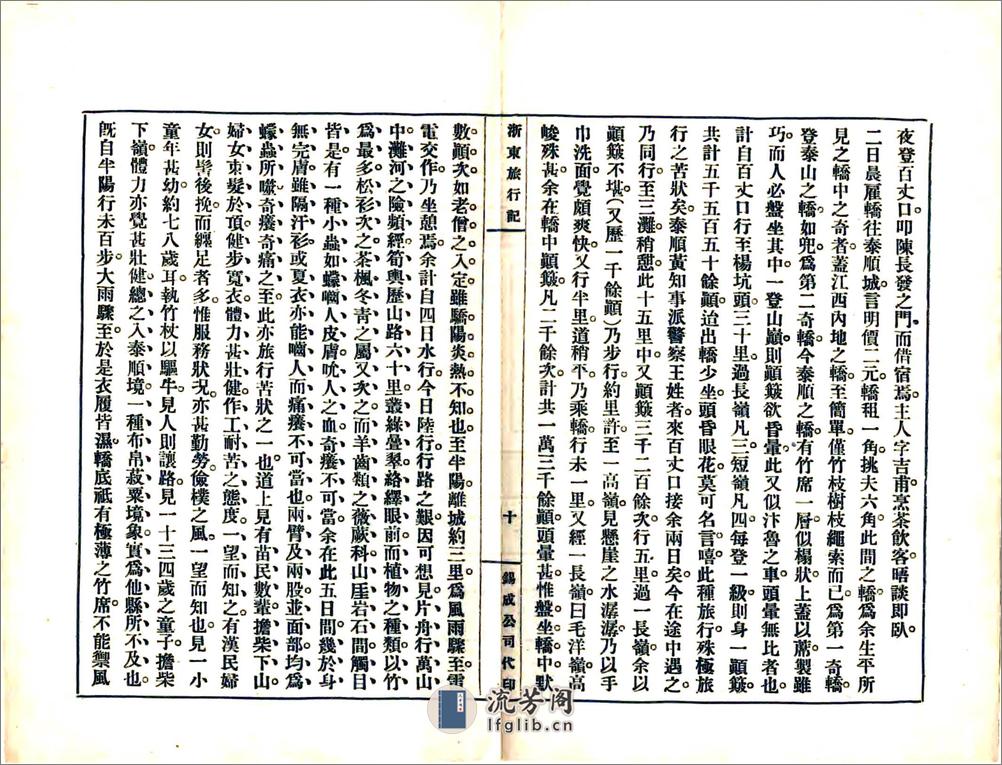 夜登百丈口叩陳長發之門而借宿焉主人字吉甫烹茶飲客晤談即臥
二日晨雇轎往泰順城言明價二元轎租一角挑夫六角此間之轎爲余生平所
見之轎中之奇者蓋江西內地之轎至簡單僅竹枝樹枝繩索而已爲第一奇轎
登泰山之轎如兜爲第二奇轎今泰順之轎有竹席一層似榻狀上蓋以蓆製雖
巧而人必盤坐其中一登山巔則顚簸欲昏暈此又似汴魯之車頭暈無比者也
計自百丈口行至楊坑頭三十里過長嶺凡三短嶺凡四每登一級則身一顚簸
共計五千五百五十餘顚迨出轎少坐頭昏眼花莫可名言嘻此種旅行殊極旅
行之苦狀矣泰順黃知事派警察王姓者來百丈口接余兩日矣今在途中遇之
乃同行至三灘稍憩此十五里中又顚簸三千二百餘次行五里過一長嶺余以
顚簸不堪(又歷一千餘顚)乃步行約里許至一高嶺見懸崖之水潺潺乃以手
巾洗面覺頗爽快又行半里道稍平乃乘轎行未一里又經一長嶺曰毛洋嶺高
峻殊甚余在轎中顚簸凡二千餘次計共一萬三千餘顚頭暈甚惟盤坐轎中默
浙東旅行記
十
錫成公司代印
數顚次如老僧之入定雖驕陽炎熱不知也至半陽離城約三里爲風雨驟至雷
電交作乃坐憩焉余計自四日水行今日陸行行路之艱因可想見片舟行萬山
中灘河之險類經筍輿歷山路六十里叢綠疊翠絡繹眼前而植物之種類以竹
爲最多松杉次之茶楓冬青之屬又次之而羊齒類之薇蕨科山崖岩石間觸目
皆是有一種小蟲如蠓嚙人皮膚吮人之血奇癢不可當余在此五日間幾於身
無完膚雖隔汗衫或夏衣亦能嚙人而痛癢不可當也兩臂及兩股並面部均爲
蠓蟲所噬奇癢奇痛之至此亦旅行苦狀之一也道上見有苗民數輩擔柴下山
婦女束髮於頂健步寬衣體力甚壯健作工耐苦之態度一望而知之有漢民婦
女則髻後挽而纏足者多惟服務狀況亦甚勤勞儉樸之風一望而知也見一小
童年甚幼約七八歲耳執竹杖以驅牛見人則讓路見一十三四歲之童子擔柴
下嶺體力亦覺甚壯健總之入泰順境一種布帛菽粟境象實爲他縣所不及也
既自半陽行未百步大雨驟至於是衣履皆濕轎底祇有極薄之竹席不能禦風
流芳阁
lfglib.cn